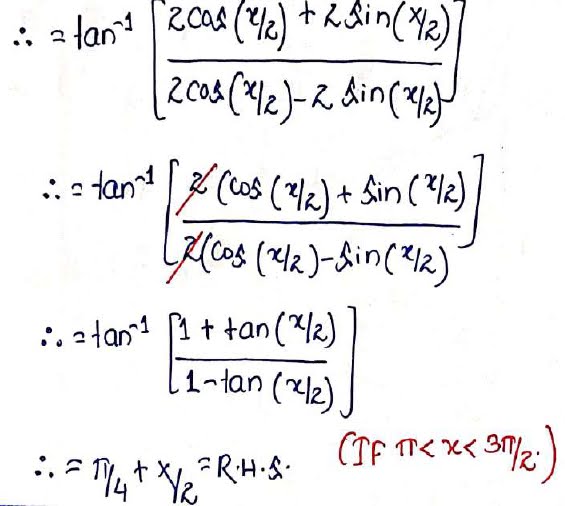 ∴ = tan⁻¹ [ 2cos(x/2) + 2 sin(x/2) / 2cos(x/2) - 2 sin(x/2) ]
∴ = tan⁻¹ [ 2 (cos (x/2) + sin (x/2) / 2(cos (x/2) - sin (x/2) ]
∴ = tan⁻¹ [ 1 + tan(x/2) / 1 - tan (x/2) ]
∴ = π/4 + x/2 = R.H.S. (If π < x < 3π/2.)